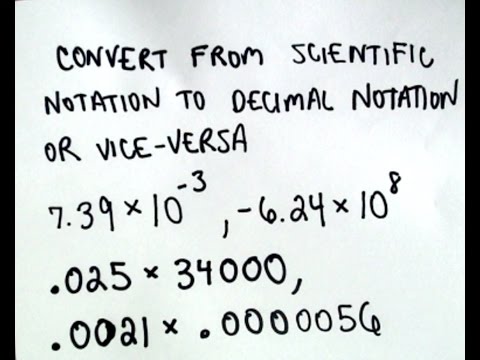 CONVERT FROM SCIENTIFIC
NOTATION TO DECIMAL NOTATION
OR VICE-VERSA
7.39 × 10⁻³, -6.24 × 10⁸
.025 × 34000,
.0021 × .0000056